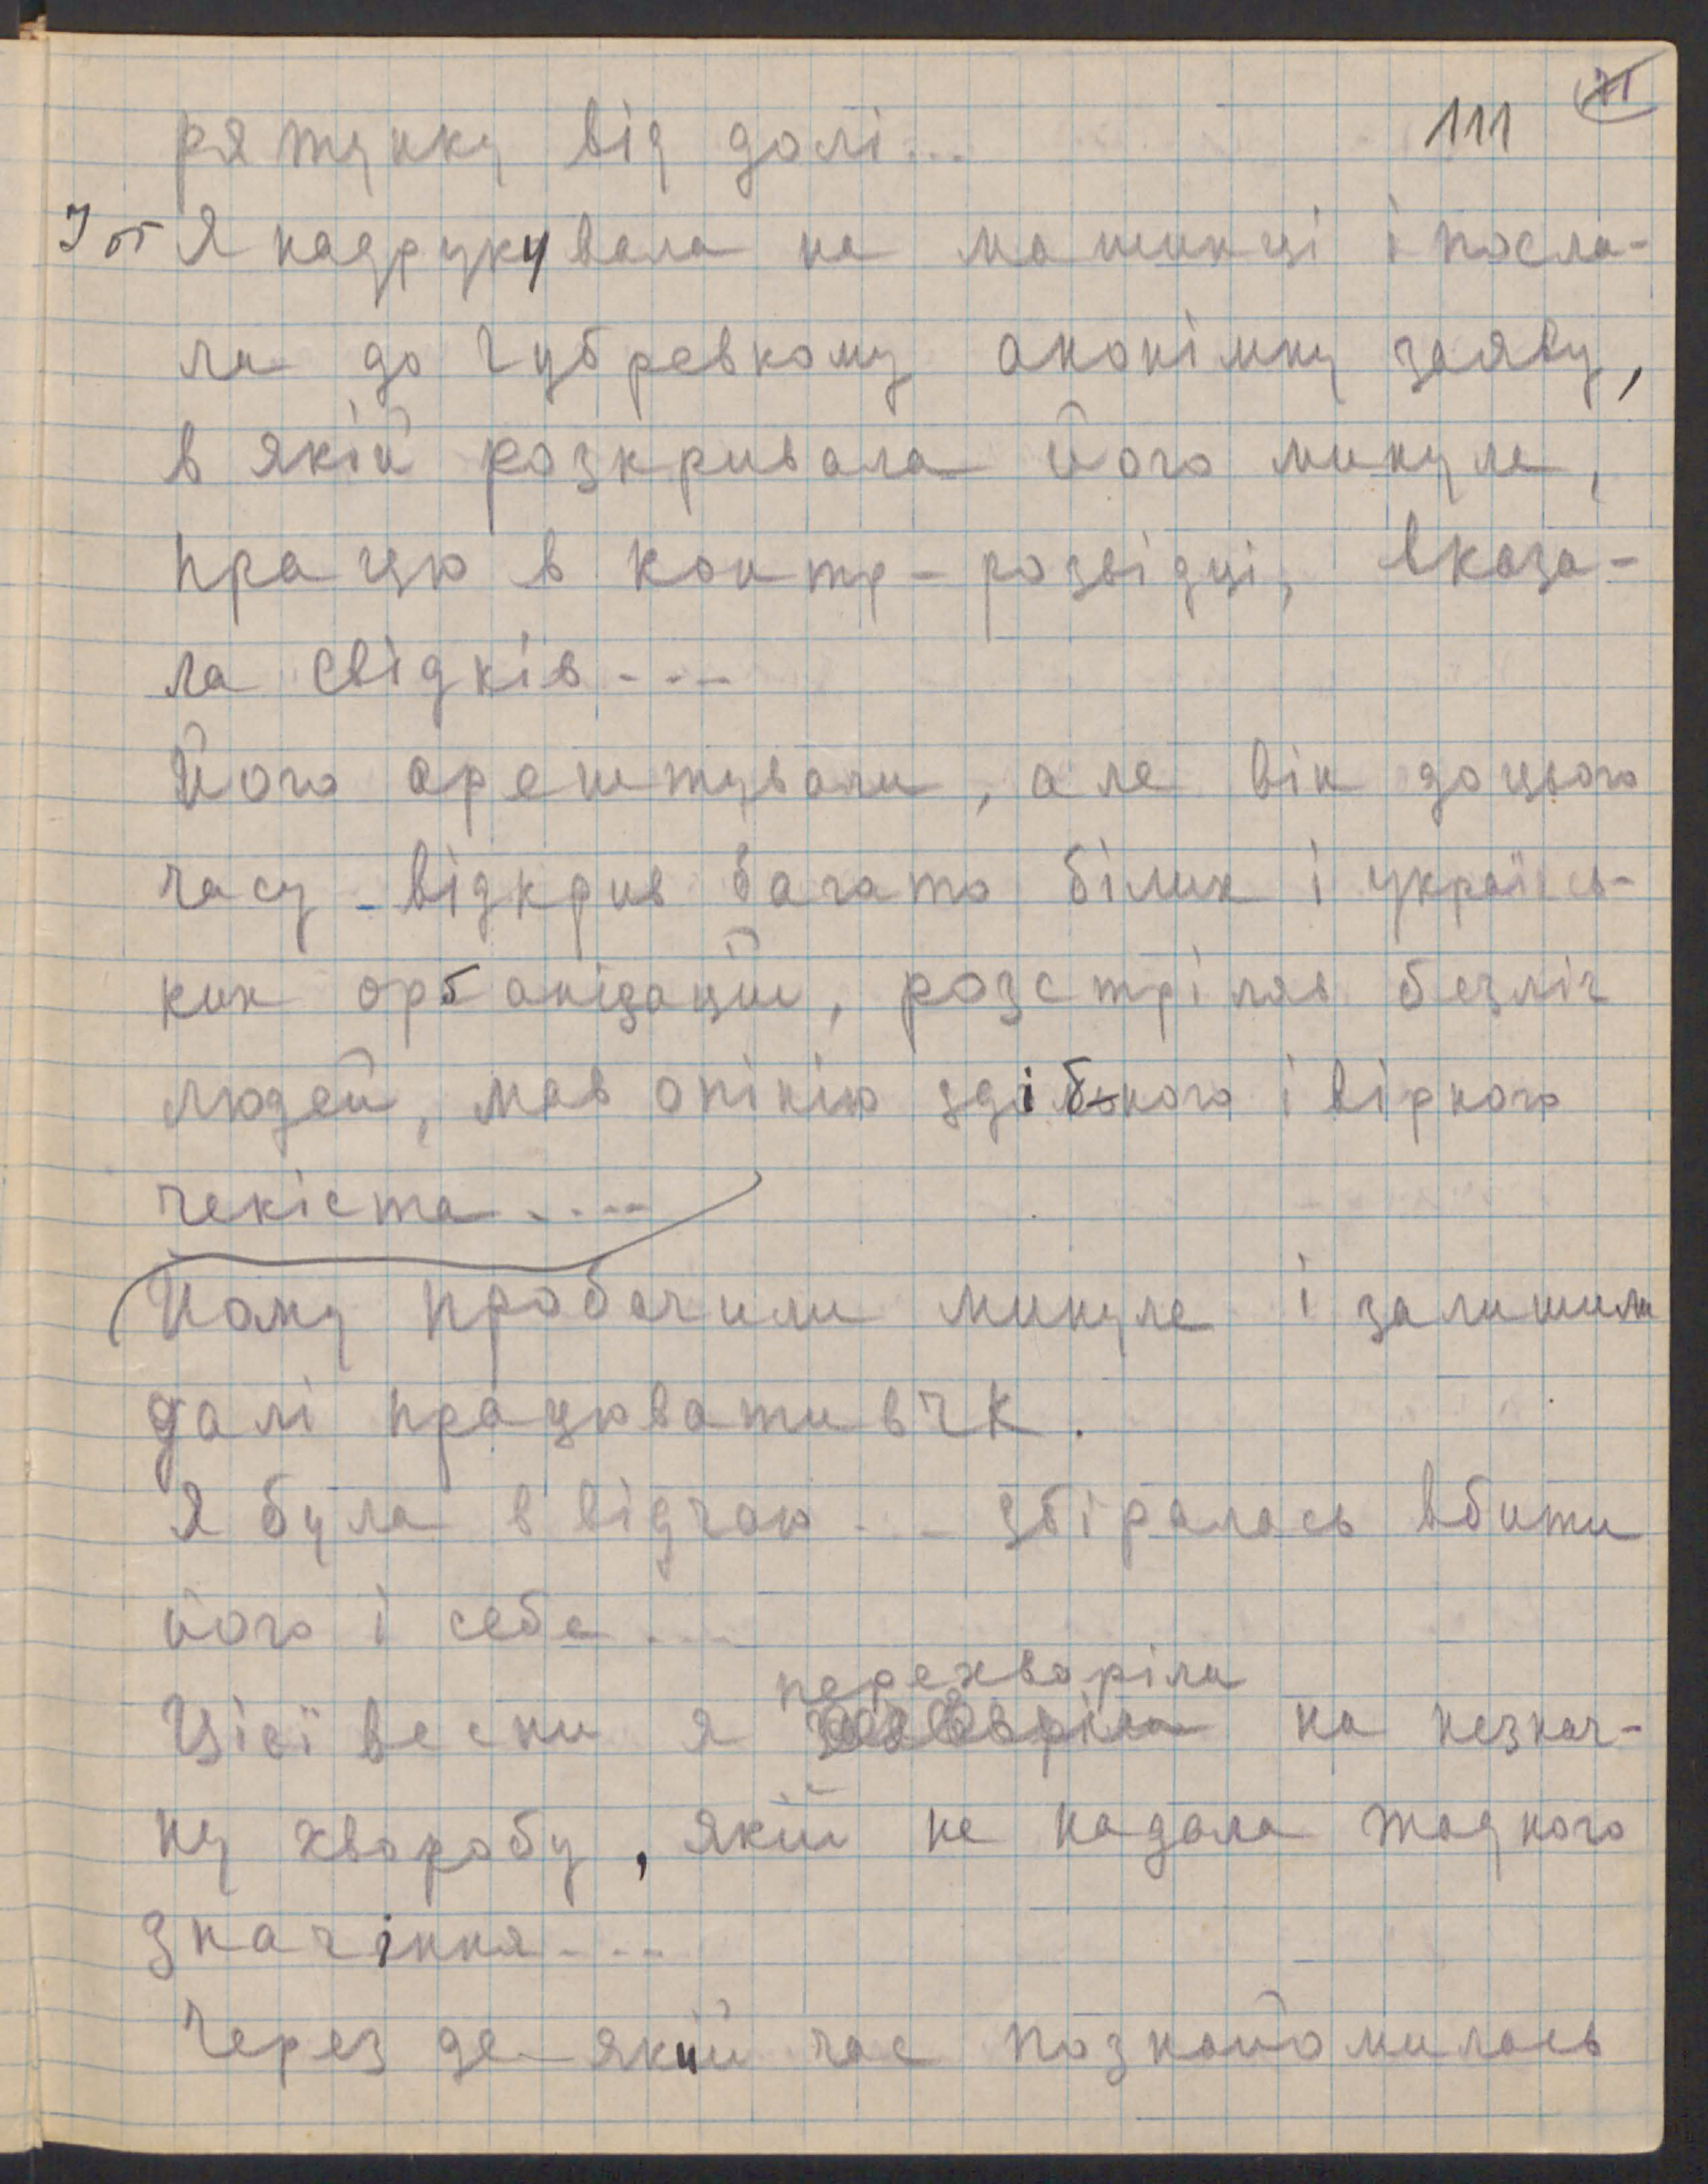 111
рятунку від долі...
І от Я надрукувала на машинці і посла-
ла до Губревкому анонімну заяву,
в якій розкривала його минуле,
працю в контр-розвідці, вказа-
ла свідків....
Його арештували, але він до цього
часу відкрив багато білих і українсь-
ких організацій, розстріляв безліч
людей, мав опінію здібного і вірного
чекіста....
Йому пробачили минуле і залишили
далі працювати в ЧК.
Я була в відчаю... збіралась вбити
його і себе...
перехворіла
Цієї весни я на незнач-
ну хворобу, якій не надала жадного
значіння....
Через де-який час познайомилась